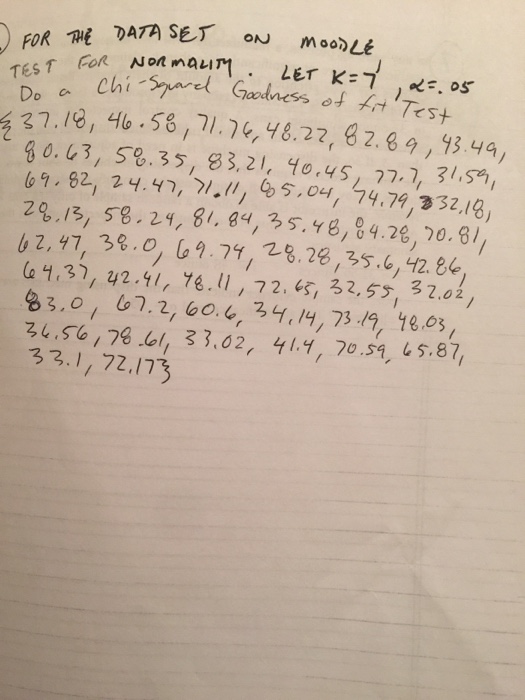 ) FOR THE DATA SET ON MOODLE
TEST FOR NORMALITY. LET K=7, α=.05
Do a Chi-Squared Goodness of fit Test
{37.18, 46.58, 71.76, 48.22, 82.89, 43.49,
80.63, 58.35, 83.21, 40.45, 77.7, 31.59,
69.82, 24.47, 71.11, 65.04, 74.79, 332.18,
28.13, 58.24, 81.84, 35.48, 84.28, 70.81,
62.47, 38.0, 69.74, 28.28, 35.6, 42.86,
64.37, 42.41, 48.11, 72.65, 32.55, 32.02,
83.0, 67.2, 60.6, 34.14, 73.19, 48.03,
36.56, 78.61, 33.02, 41.4, 70.59, 65.87,
33.1, 72.17}